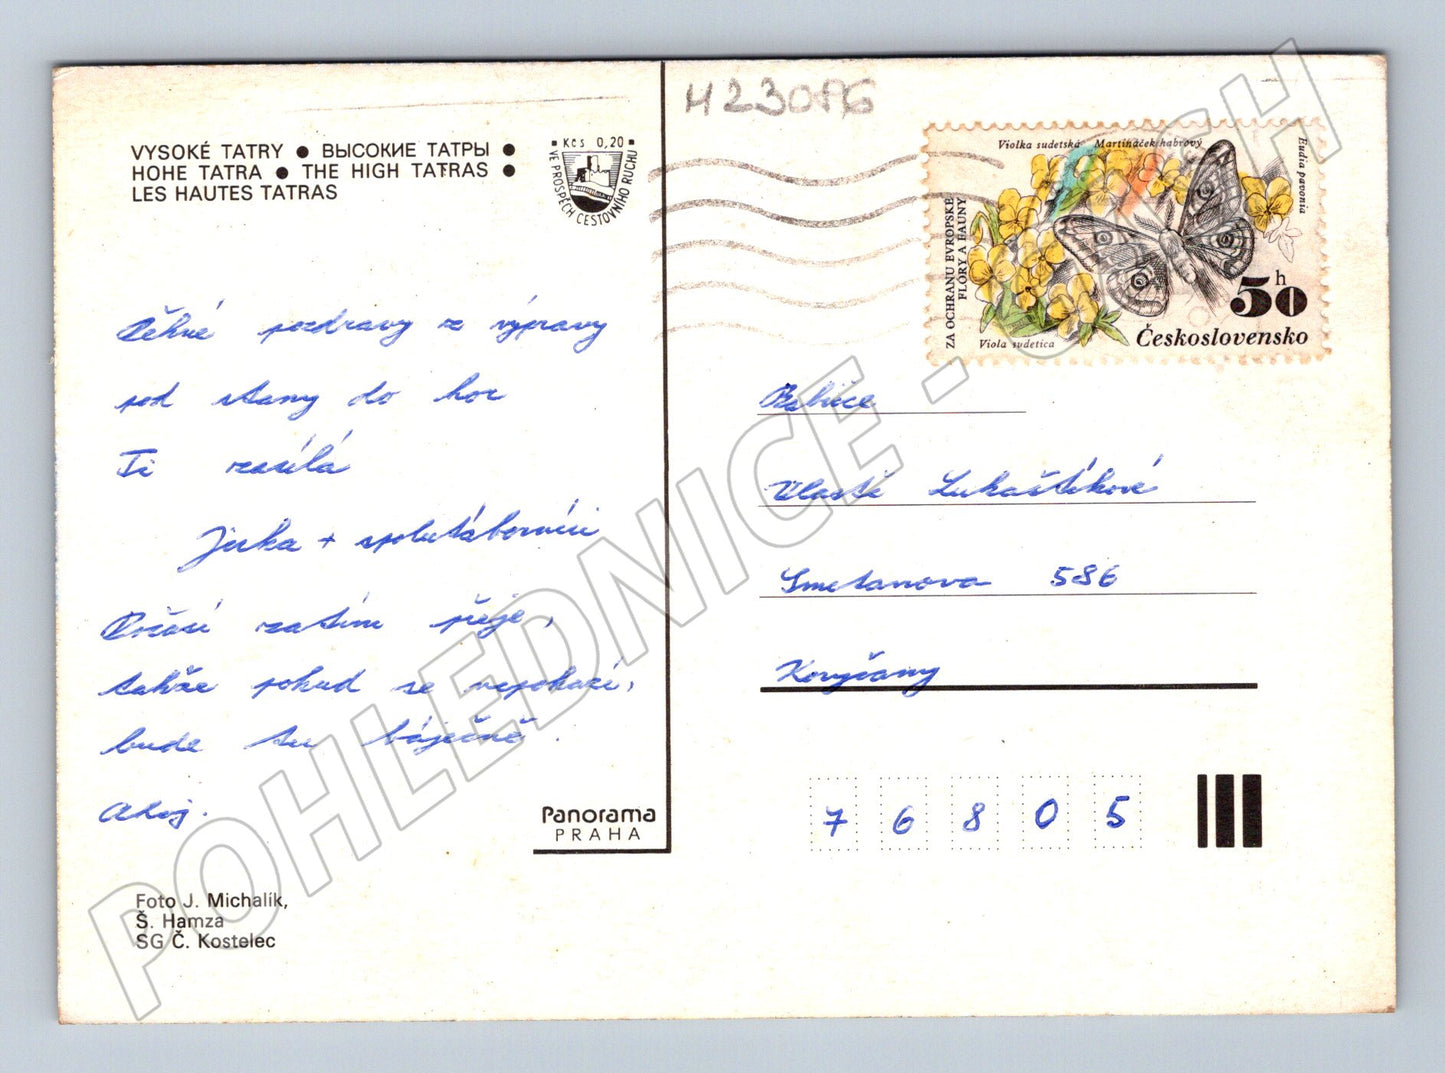 H23086
VYSOKÉ TATRY ● ВЫСОКИЕ ТАТРЫ ●
HOHE TATRA ● THE HIGH TATRAS ●
LES HAUTES TATRAS
Kčs 0,20
VE PROSPĚCH CESTOVNÍHO RUCHU
Violka sudetská Martináček habrový
Eudia pavonia
ZA OCHRANU EVROPSKÉ
FLÓRY A FAUNY
Viola sudetica
50 h
Československo
pozdravy z výpravy
pod stany do hor
Ti zasílá
Jirka + spolutáborníci
Počasí zatím přeje,
takže pokud se nepokazí,
bude tu báječně.
Ahoj.
Vlastě Lukaštíkové
Smetanova 586
Koryčany
76805
Panorama
PRAHA
Foto J. Michalík,
Š. Hamza
SG Č. Kostelec
POHLEDNICE - SBĚH